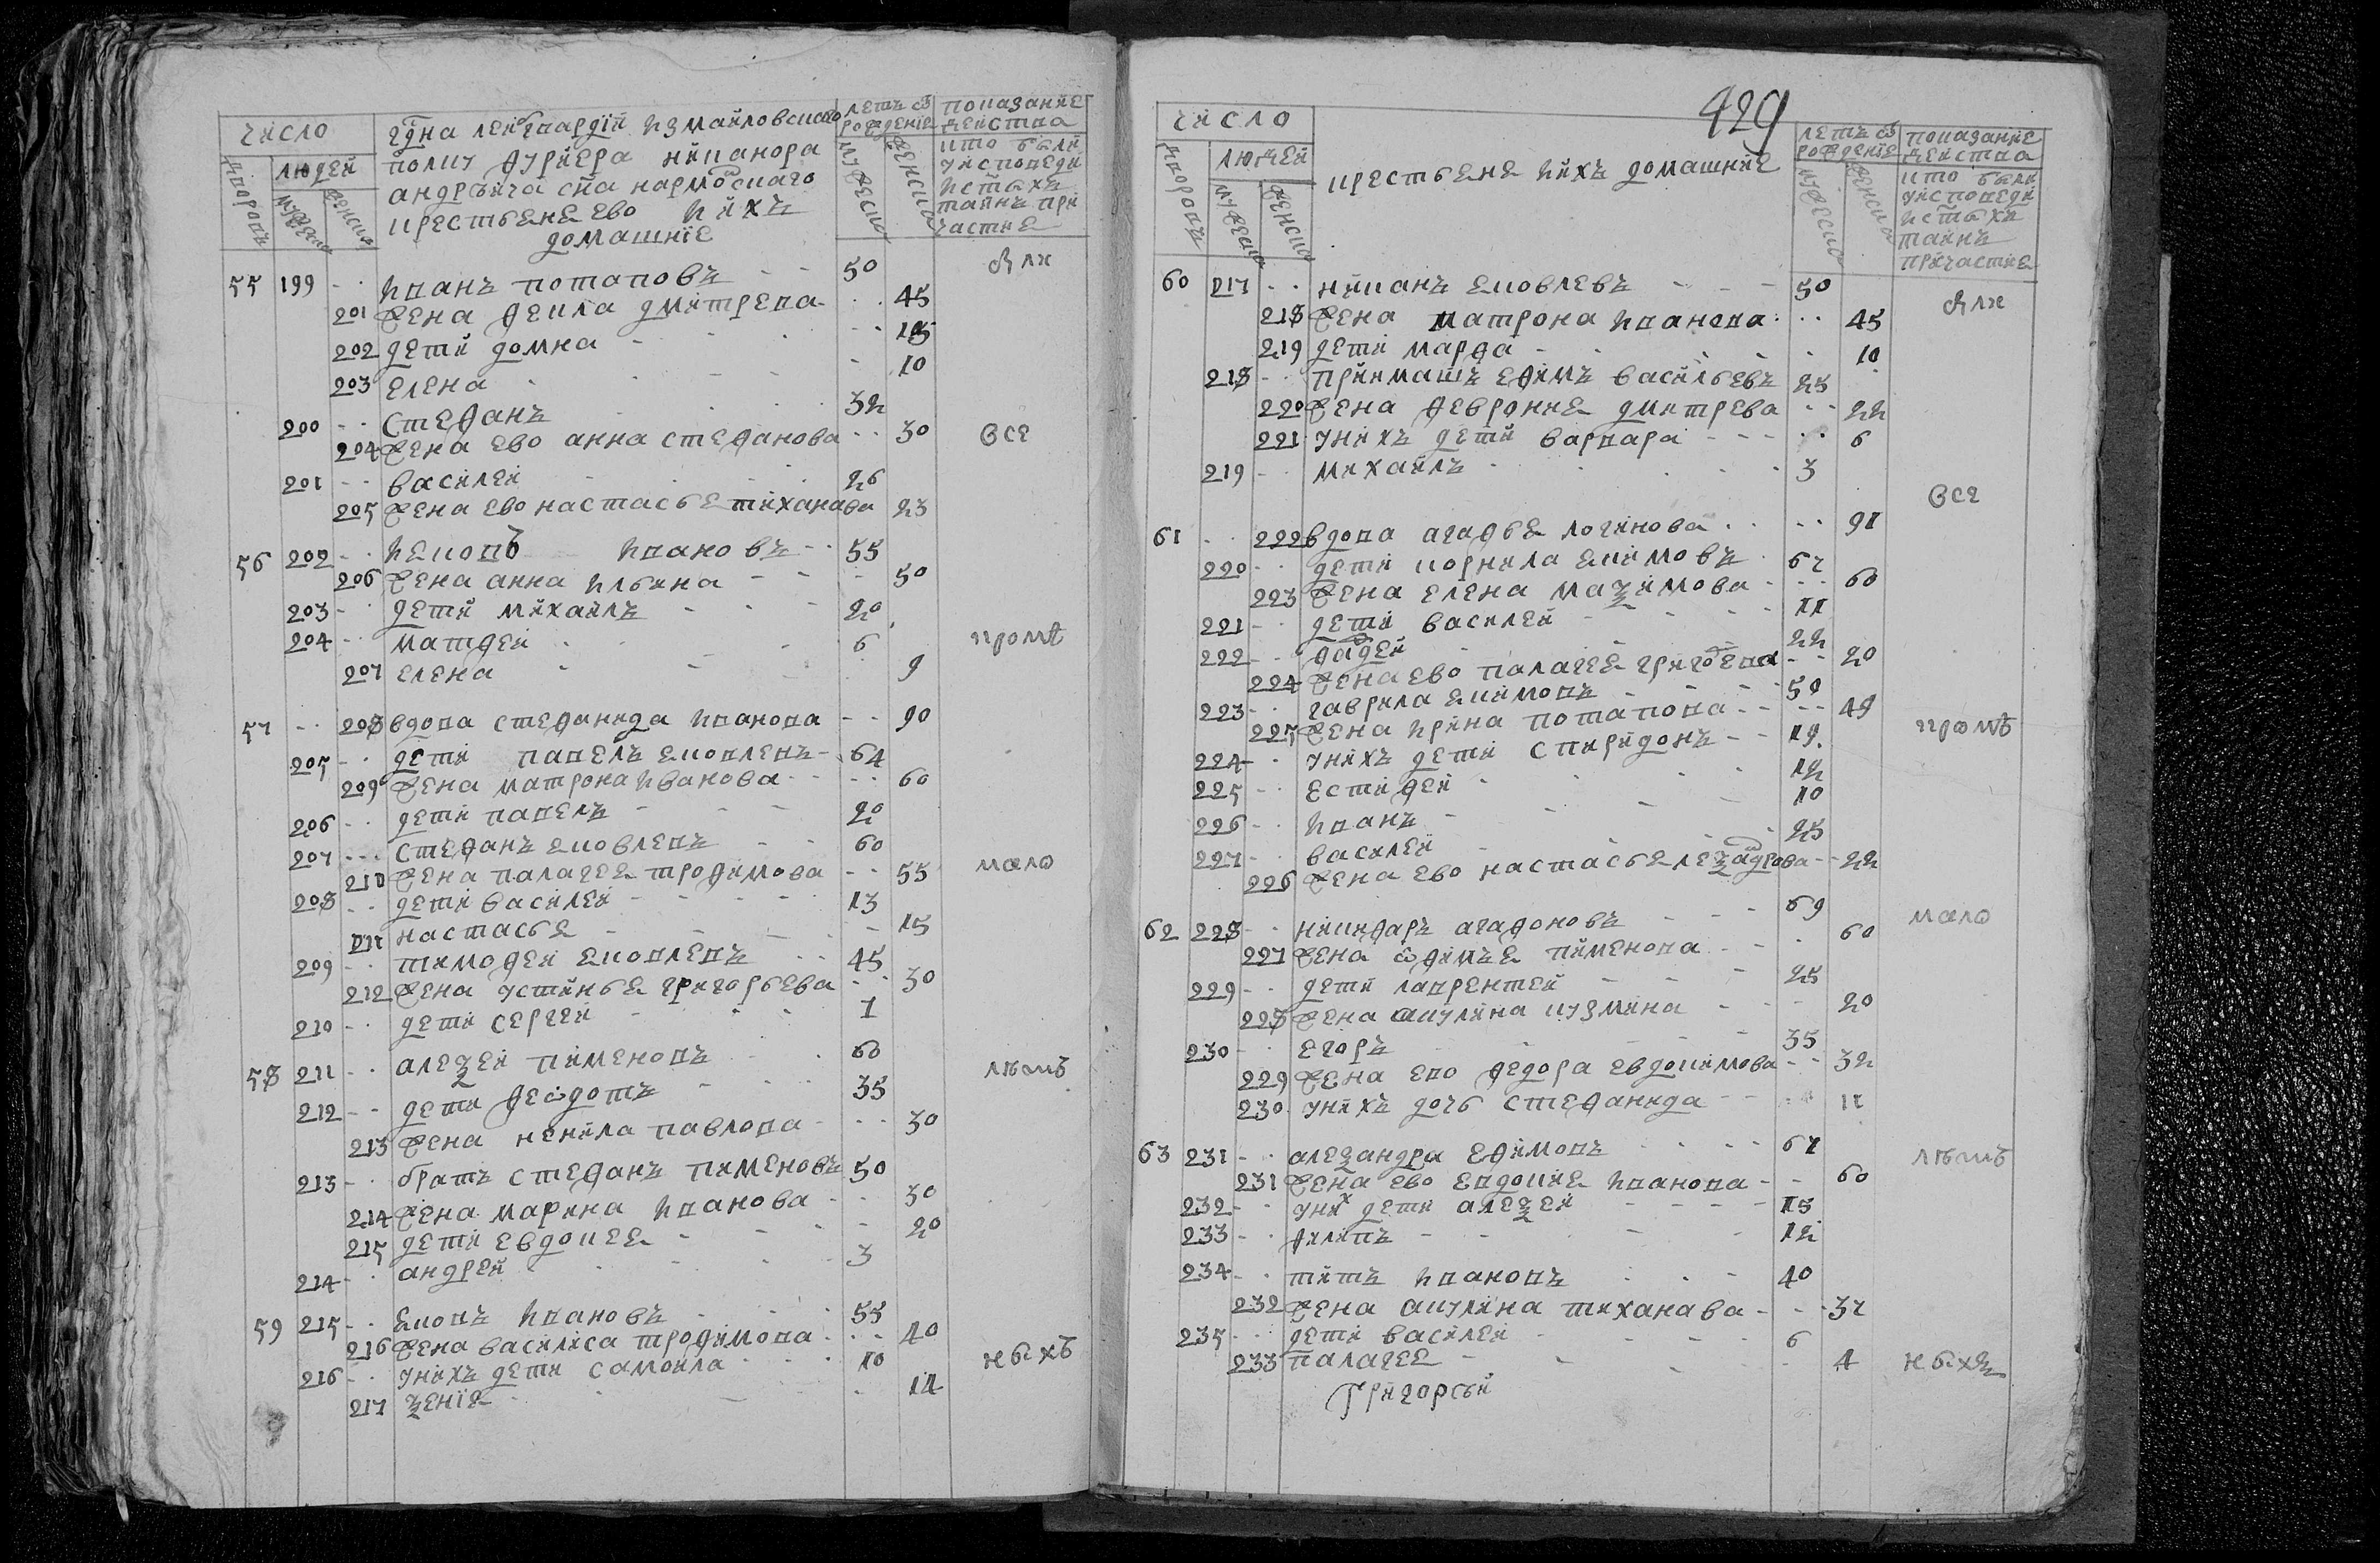 число
людей
дворовъ
мужеска
женска
гдна леибгвардїи измайловскаго
полку фуриера никанора
андрѣича сна нармоцкаго
крестьяне ево и ихъ
домашніе
летъ ѿ
рождениѣ
мужеска
женска
показание
действа
кто были
уисповеди
истыхъ
таинъ при
частие
55 199 иванъ потаповъ 50 для
201 жена фекла дмитрева 45
202 дети домна 15
203 елена 10
200 стефанъ 32
204 жена ево анна стефанова 30 все
201 василей 26
205 жена ево настасья тиханава 23
56 202 иаковъ ивановъ 55
206 жена анна ильина 50
203 дети михаилъ 20
204 матфеи 6 кромѣ
207 елена 9
57 208 вдова стефанида иванова 90
205 дети павелъ яковлевъ 64
209 жена матрона иванова 60
206 дети павелъ 20
207 стефанъ яковлевъ 60
210 жена палагея трофимова 55 мало
208 дети василей 13
211 настасья 15
209 тимофей яковлевъ 45
212 жена устинья григорьева 30
210 дети сергей 1
58 211 алеѯей пименовъ 60 лѣтъ
212 дети феѡдотъ 35
213 жена ненила павлова 30
213 братъ стефанъ пименовъ 50
214 жена марина иванова 30
215 дети евдокея 20
214 андрей 3
59 215 яковъ ивановъ 55
216 жена василиса трофимова 40
216 унихъ дети самойла 10 ныхъ
217 ѯенїя 14
429
число
людей
дворовъ
мужеска
женска
крестьяне ихъ домашние
летъ ѿ
рождениѣ
мужеска
женска
показание
действа
кто были
уисповеди
истыхъ
таинъ
причастие
60 217 никанъ яковлевъ 50 для
218 жена матрона иванова 45
219 дети марфа 10
218 приимашъ ефимъ васильевъ 25
220 жена февронья дмитрева 22
221 унихъ дети варвара 6
219 михаилъ 3
все
61 222 вдова агафья логинова 91
220 дети корнила якимовъ 62
223 жена елена маѯимова 60
221 дети василей 11
222 фадей 22
224 жена ево палагея григорева 20
223 гаврила якимовъ 50
225 жена ирина потапова 49
224 унихъ дети спиридонъ 19 кромѣ
225 естифей 12
226 иванъ 10
227 василей 25
226 жена ево настасья леѯадрова 22
62 228 никифаръ агафоновъ 69 мало
227 жена ѡфимья пименова 60
229 дети лаврентей 25
228 жена акулина кузмина 20
230 егоръ 35
229 жена ево федора евдокимова 32
230 унихъ дочь стефанида 11
63 231 алеѯандра ефимовъ 67 лѣтъ
231 жена ево евдокия иванова 60
232 уних дети алеѯей 15
233 филипъ 12
234 титъ ивановъ 40
232 жена акулина тиханава 32
235 дети василей 6
233 палагея 4 ныхъ
Григорей